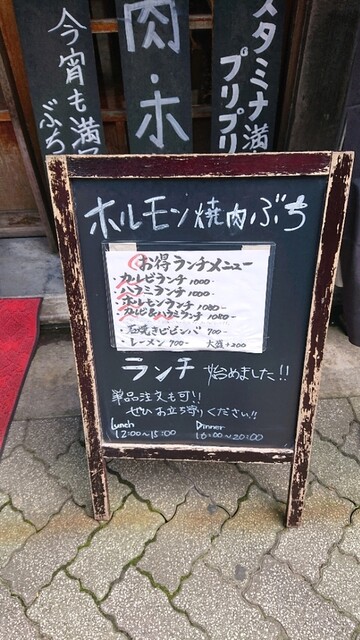 今宵も満
ぶち
肉・ホ
スタミナ満
プリプリ
ホルモン焼肉ぶち
お得ランチメニュー
・カルビランチ 1000-
・ハラミランチ 1000-
・ホルモンランチ 1080-
・カルビ&ハラミランチ 1080-
・石焼きビビンバ 700-
・レーメン 700- 大盛+200
ランチ 始めました!!
単品注文も可!!
ぜひお立ち寄りください!!
Lunch Dinner
12:00〜15:00 16:00〜20:00